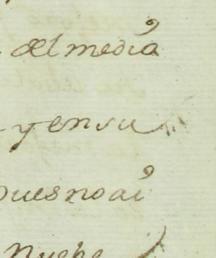 del media
y ensu
pues no ai
nuebe